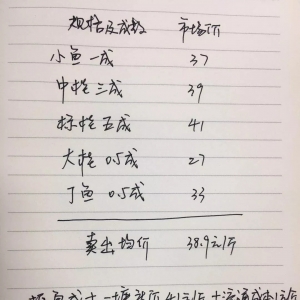 规格及成数 市场价
小鱼 一成 37
中桂 三成 39
标桂 五成 41
大桂 0.5成 27
丁鱼 0.5成 33
卖出均价 38.9元/斤